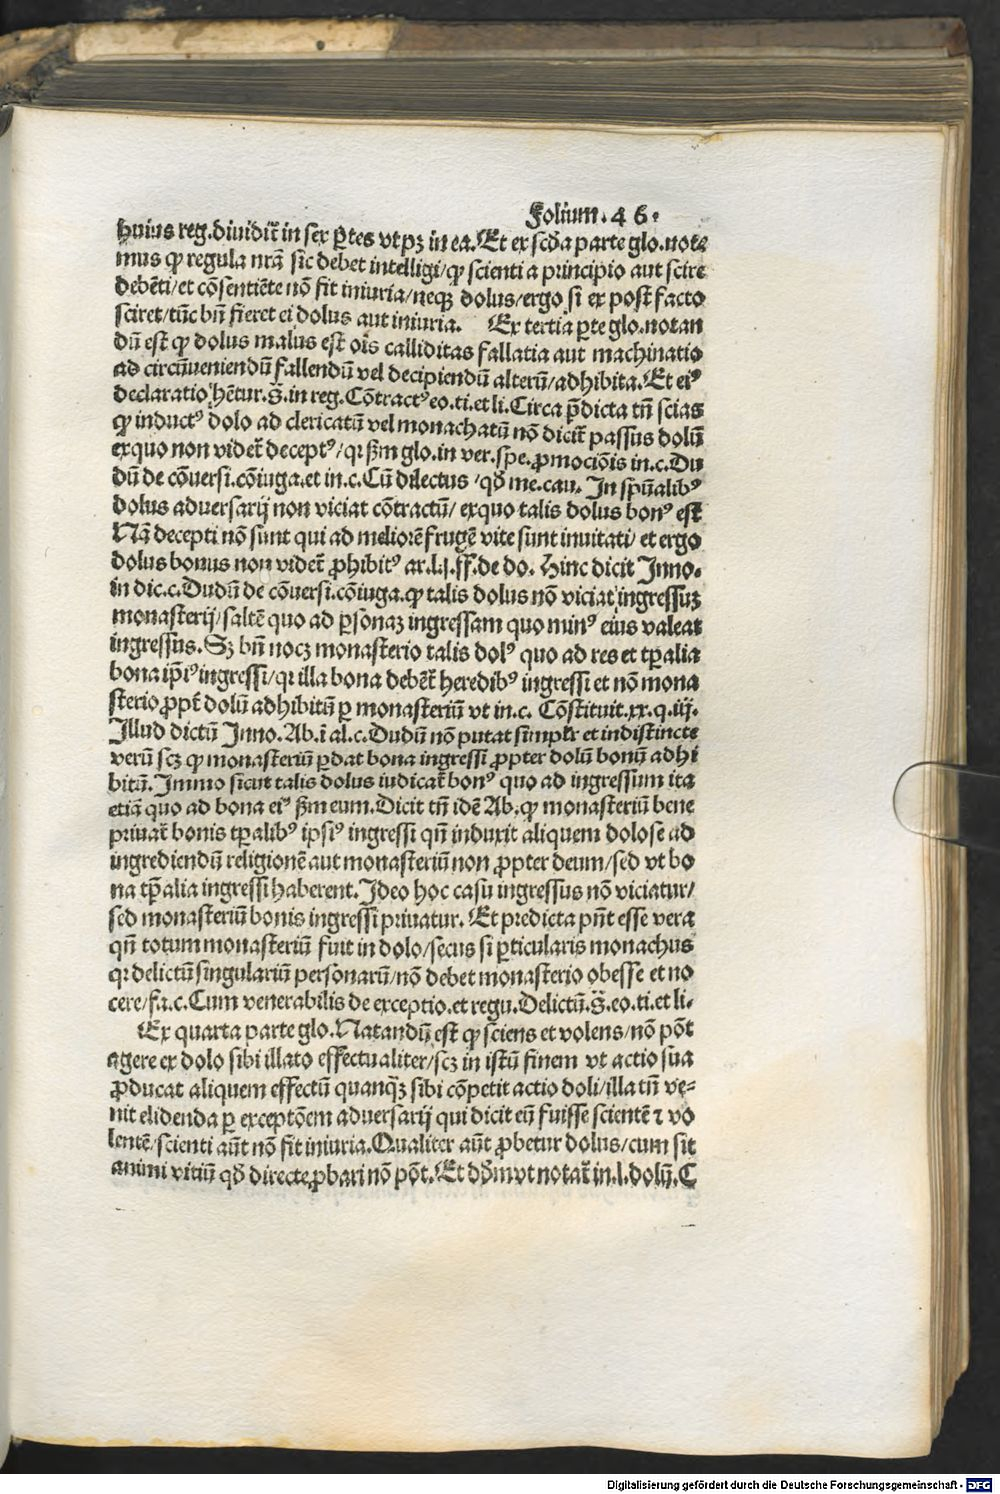 Folium .46.
huius reg. diuidit̃ in sex ꝑtes vt pꝫ in ea. Et ex scđa parte glo. note
mus ꝙ regula nrã sic debet intelligi/ꝙ scienti a principio aut scire
debẽti/et cõsentiẽte nõ fit iniuria/neqꝫ dolus/ergo si ex post facto
sciret/tũc bñ fieret ei dolus aut iniuria. Ex tertia ꝑte glo. notan
dũ est ꝙ dolus malus est oĩs calliditas fallatia aut machinatio
ad circũueniendũ fallendũ vel decipiendũ alterũ/adhibita. Et eiꝰ
declaratio hẽtur. s̃. in reg. Cõtractꝰ eo. ti. et li. Circa p̃dicta tñ scias
ꝙ inductꝰ dolo ad clericatũ vel monachatũ nõ dicit̃ passus dolũ
exquo non videt̃ deceptꝰ/qꝛ ẜm glo. in ver. spe. ꝓmociõis in. c. Du
dũ de cõuersi. cõiuga. et in. c. Cũ dilectus/qđ me. cau. In spũalibꝰ
dolus aduersarij non viciat cõtractũ/ exquo talis dolus bonꝰ est
Nã decepti nõ sunt qui ad meliorẽ frugẽ vite sunt inuitati/ et ergo
dolus bonus non videt̃ ꝓhibitꝰ ar. l. j. ff. de do. Hinc dicit Inno.
in dic. c. Dudũ de cõuersi. cõiuga. ꝙ talis dolus nõ viciat ingressuꝫ
monasterij/saltẽ quo ad ꝑsonaꝫ ingressam quo minꝰ eius valeat
ingressus. Sꝫ bñ nocꝫ monasterio talis dolꝰ quo ad res et tꝑalia
bona ip̃iꝰ ingressi/qꝛ illa bona debẽt̃ heredibꝰ ingressi et nõ mona
sterio ꝓpt̃ dolũ adhibitũ ꝑ monasteriũ vt in. c. Cõstituit. xx. q. iij.
Illud dictũ Inno. Ab. ĩ al. c. Dudũ nõ putat simplr̃ et indistincte
verũ scꝫ ꝙ monasteriũ ꝑdat bona ingressi ꝓpter dolũ bonũ adhi
bitũ. Immo sicut talis dolus iudicat̃ bonꝰ quo ad ingressum ita
etiã quo ad bona eiꝰ ẜm eum. Dicit tñ idẽ Ab. ꝙ monasteriũ bene
priuat̃ bonis tꝑalibꝰ ipsiꝰ ingressi qñ induxit aliquem dolose ad
ingrediendũ religionẽ aut monasteriũ non ꝓpter deum/sed vt bo
na tꝑalia ingressi haberent. Ideo hoc casu ingressus nõ viciatur/
sed monasteriũ bonis ingressi priuatur. Et predicta pñt esse vera
qñ totum monasteriũ fuit in dolo/secus si ꝑticularis monachus
qꝛ delictũ singulariũ personarũ/nõ debet monasterio obesse et no
cere/f. ĩ. c. Cum venerabilis de exceptio. et regu. Delictũ. s̃. eo. ti. et li.
Ex quarta parte glo. Natandũ est ꝙ sciens et volens/nõ põt
agere ex dolo sibi illato effectualiter/scꝫ in istũ finem vt actio sua
ꝓducat aliquem effectũ quanqꝫ̃ sibi cõpetit actio doli/illa tñ ve⸗
nit elidenda ꝑ exceptõem aduersarij qui dicit eũ fuisse scientẽ ⁊ vo
lentẽ/scienti aũt nõ fit iniuria. Qualiter aũt ꝓbetur dolus/cum sit
animi vitiũ qđ directe ꝓbari nõ põt. Et dđm vt notat̃ in. l. dolũ. C
Digitalisierung gefördert durch die Deutsche Forschungsgemeinschaft - DFG